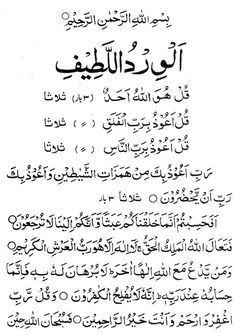 بِسْمِ اللهِ الرَّحْمٰنِ الرَّحِيْمِ ○
اَلْوِرْدُ اللَّطِيْف
قُلْ هُوَ اللهُ اَحَدٌ (٣ بار) ثلاثا
قُلْ اَعُوْذُ بِرَبِّ الْفَلَقِ ( ) ثلاثا
قُلْ اَعُوْذُ بِرَبِّ النَّاسِ ( ) ثلاثا
رَبِّ اَعُوْذُ بِكَ مِنْ هَمَزَاتِ الشَّيٰطِيْنِ وَاَعُوْذُ بِكَ
رَبِّ اَنْ يَّحْضُرُوْنِ ○ ثلاثا ٣ بار
اَفَحَسِبْتُمْ اَنَّمَا خَلَقْنٰكُمْ عَبَثًا وَّاَنَّكُمْ اِلَيْنَا لَا تُرْجَعُوْنَ ○
فَتَعَالَى اللهُ الْمَلِكُ الْحَقُّ لَآ اِلٰهَ اِلَّا هُوَ رَبُّ الْعَرْشِ الْكَرِيْمِ ○
وَمَنْ يَّدْعُ مَعَ اللهِ اِلٰهًا اٰخَرَ لَا بُرْهَانَ لَهٗ بِهٖ فَاِنَّمَا
حِسَابُهٗ عِنْدَ رَبِّهٖ اِنَّهٗ لَا يُفْلِحُ الْكٰفِرُوْنَ ○ وَقُلْ رَّبِّ
اغْفِرْ وَارْحَمْ وَاَنْتَ خَيْرُ الرَّاحِمِيْنَ ○ فَسُبْحَانَ اللهِ حِيْنَ